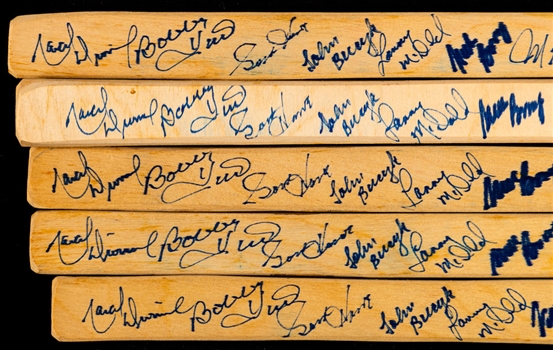 Marcel Dionne Bobby Hull Gordie Howe John Bucyk Lanny McDonald Mike Bossy
Marcel Dionne Bobby Hull Gordie Howe John Bucyk Lanny McDonald Mike Bossy
Marcel Dionne Bobby Hull Gordie Howe John Bucyk Lanny McDonald Mike Bossy
Marcel Dionne Bobby Hull Gordie Howe John Bucyk Lanny McDonald Mike Bossy
Marcel Dionne Bobby Hull Gordie Howe John Bucyk Lanny McDonald